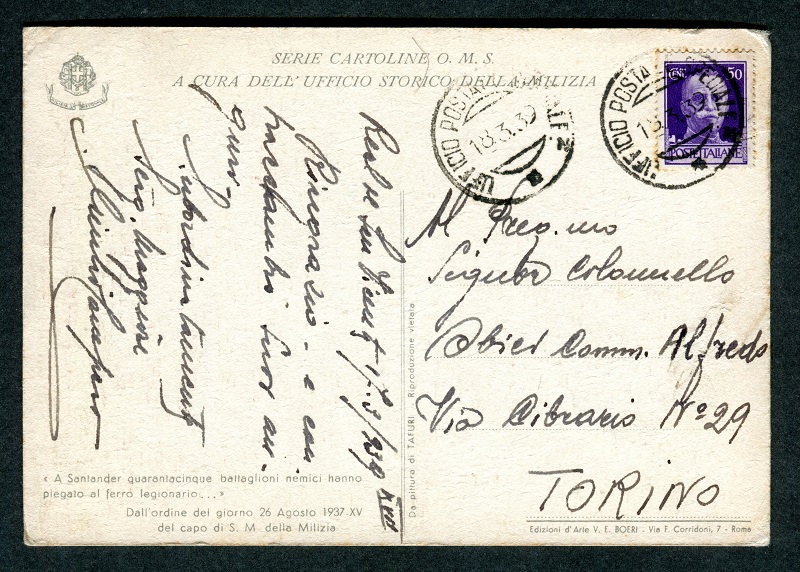 SERIE CARTOLINE O. M. S.
A CURA DELL' UFFICIO STORICO DELLA MILIZIA
UFFICIO POSTALE SPECIALE 2
18.3.39
UFFICIO POSTALE SPECIALE 2
18.3.39
CENT. 50
POSTE ITALIANE
17/3/939 XVII
Ringrazio - e con
auguri
Subordinatamente
Serg. Maggiore
Al Preg.mo
Signor Colonnello
Obici Comm. Alfredo
Via Cibrario Nº 29
TORINO
« A Santander quarantacinque battaglioni nemici hanno
piegato al ferro legionario... »
Dall'ordine del giorno 26 Agosto 1937-XV
del capo di S. M. della Milizia
Da pittura di TAFURI - Riproduzione vietata
Edizioni d'Arte V. E. BOERI - Via F. Corridoni, 7 - Roma